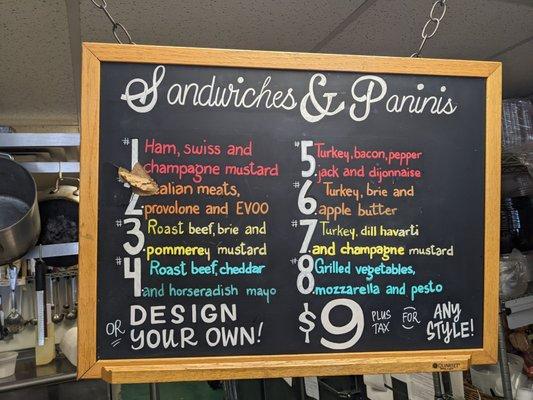 Sandwiches & Paninis
#1. Ham, swiss and
champagne mustard
#2. Italian meats,
provolone and EVOO
#3. Roast beef, brie and
pommerey mustard
#4. Roast beef, cheddar
and horseradish mayo
#5. Turkey, bacon, pepper
jack and dijonnaise
#6. Turkey, brie and
apple butter
#7. Turkey, dill havarti
and champagne mustard
#8. Grilled vegetables,
mozzarella and pesto
OR DESIGN
YOUR OWN!
$9 PLUS TAX FOR ANY STYLE!
QUARTET